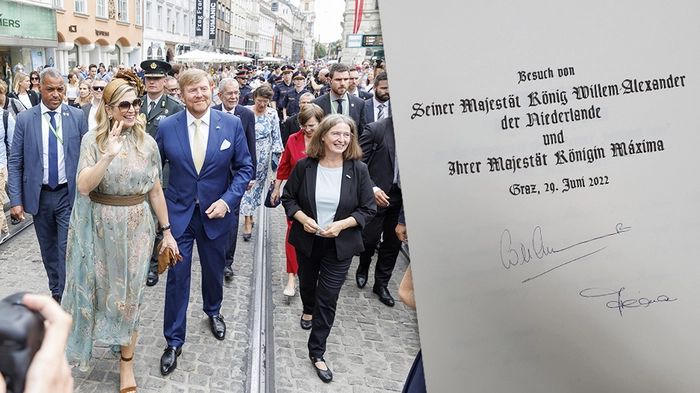 MERS
Frag Franz
HUMANIC
Besuch von
Seiner Majestät König Willem-Alexander
der Niederlande
und
Ihrer Majestät Königin Máxima
Graz, 29. Juni 2022